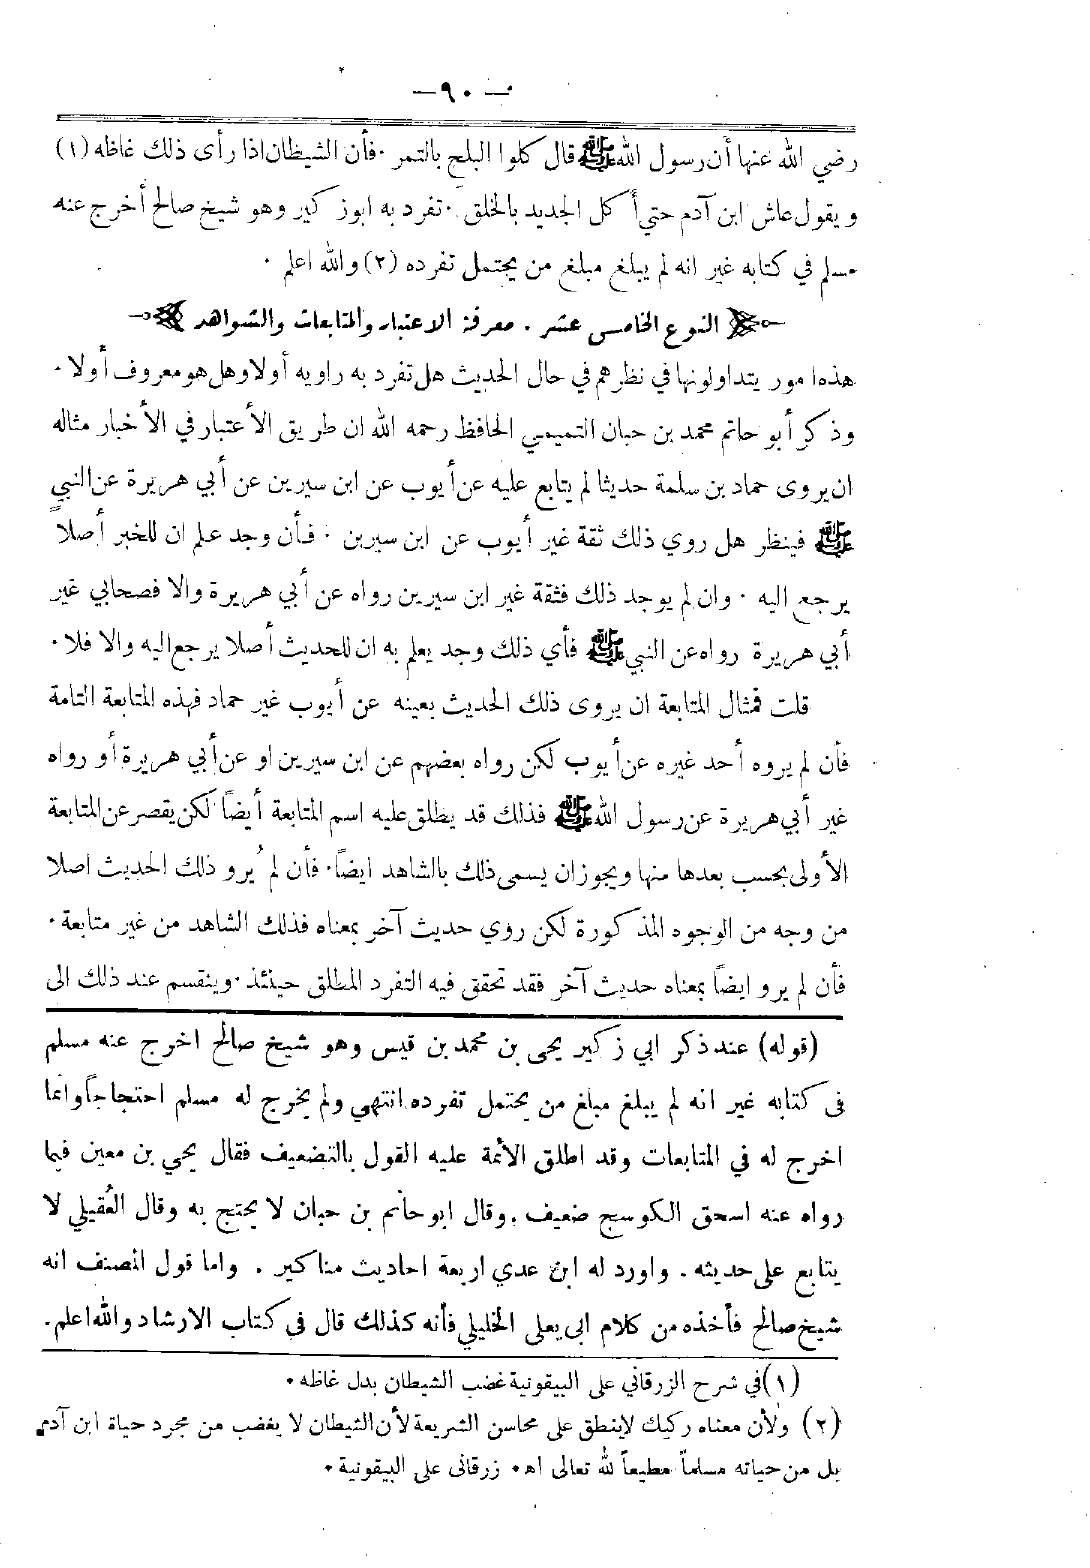 — ٩٠ —
رضي الله عنها أن رسول الله ﷺ قال كلوا البلح بالتمر · فأن الشيطان اذا رأى ذلك غاظه (١)
ويقول عاش ابن آدم حتي أكل الجديد بالخلق · تفرد به ابوزكير وهو شيخ صالح أخرج عنه
مسلم في كتابه غير انه لم يبلغ مبلغ من يحتمل تفرده (٢) والله اعلم ·
النوع الخامس عشر . معرفة الاعتبار والمتابعات والشواهد
هذه امور يتداولونها في نظرهم في حال الحديث هل تفرد به راويه أولا وهل هو معروف أولا ·
وذكر أبو حاتم محمد بن حبان التميمي الحافظ رحمه الله ان طريق الأعتبار في الأخبار مثاله
ان يروى حماد بن سلمة حديثا لم يتابع عليه عن أيوب عن ابن سيرين عن أبي هريرة عن النبي
ﷺ فينظر هل روي ذلك ثقة غير أيوب عن ابن سيرين · فأن وجد علم ان للخبر أصلا
يرجع اليه · وان لم يوجد ذلك فثقة غير ابن سيرين رواه عن أبي هريرة والا فصحابي غير
أبي هريرة رواه عن النبي ﷺ فأي ذلك وجد يعلم به ان للحديث أصلا يرجع اليه والا فلا ·
قلت فمثال المتابعة ان يروى ذلك الحديث بعينه عن أيوب غير حماد فهذه المتابعة التامة
فأن لم يروه أحد غيره عن أيوب لكن رواه بعضهم عن ابن سيرين او عن أبي هريرة أو رواه
غير أبي هريرة عن رسول الله ﷺ فذلك قد يطلق عليه اسم المتابعة أيضاً لكن يقصر عن المتابعة
الأولى بحسب بعدها منها ويجوز ان يسمى ذلك بالشاهد ايضاً · فأن لم يُرو ذلك الحديث اصلا
من وجه من الوجوه المذكورة لكن روي حديث آخر بمعناه فذلك الشاهد من غير متابعة ·
فأن لم يرو ايضاً بمعناه حديث آخر فقد تحقق فيه التفرد المطلق حينئذ · وينقسم عند ذلك الى
(قوله) عند ذكر ابي زكير يحيى بن محمد بن قيس وهو شيخ صالح اخرج عنه مسلم
فى كتابه غير انه لم يبلغ مبلغ من يحتمل تفرده انتهي ولم يخرج له مسلم احتجاجاً وانما
اخرج له في المتابعات وقد اطلق الأئمة عليه القول بالتضعيف فقال يحي بن معين فيما
رواه عنه اسحق الكوسج ضعيف . وقال ابو حاتم بن حبان لا يحتج به وقال العُقيلي لا
يتابع على حديثه . واورد له ابن عدي اربعة احاديث مناكير . واما قول المصنف انه
شيخ صالح فأخذه من كلام ابى يعلى الخليلي فأنه كذلك قال فى كتاب الارشاد والله اعلم .
(١) في شرح الزرقاني على البيقونية غضب الشيطان بدل غاظه ·
(٢) ولأن معناه ركيك لاينطق على محاسن الشريعة لأن الشيطان لا يغضب من مجرد حياة ابن آدم
بل من حياته مسلماً مطيعاً لله تعالى اه· زرقانى على البيقونية ·